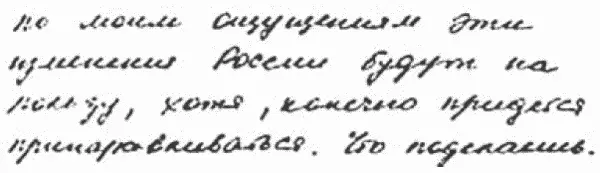 по моим ощущениям эти
изменения России будут на
пользу, хотя, конечно придется
приноравливаться. Что поделаешь.